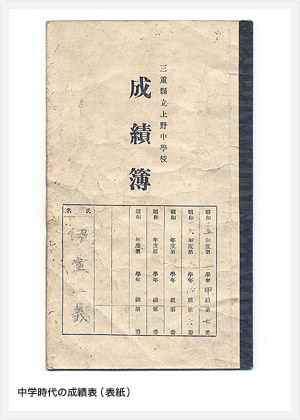 三重縣立上野中學校
成績簿
昭和 年度第 學年 組第 番
昭和 年度第 學年 組第 番
昭和 年度第 學年 組第 番
昭和 年度第 學年 組第六番
昭和 年度第 學年甲組第七番
氏名
伊室一義
中学時代の成績表（表紙）